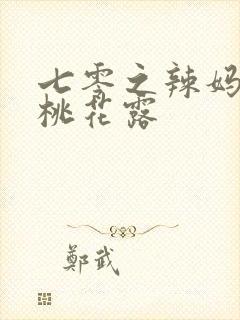 七零之辣妈
桃花露
鄭武